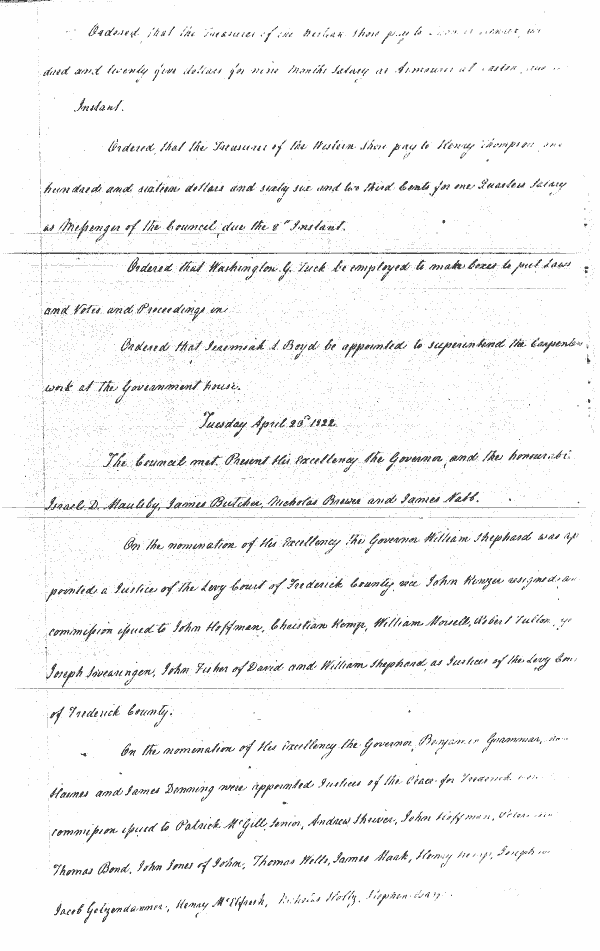 Ordered, that the Treasurer of the Western Shore pay to
dred and twenty five dollars for nine Months Salary as Armourer at Easton, due
Instant.
Ordered, that the Treasurer of the Western Shore pay to Henry Thompson one
hundred and sixteen dollars and sixty six and two third Cents, for one Quarters Salary
as Messenger of the Council, due the 8th Instant.
Ordered that Washington G. Tuck be employed to make boxes to put Laws
and Votes and Proceedings in
Ordered that Jeremiah L. Boyd be appointed to superintend the Carpenters
work at the Government house.
Tuesday April 23d 1822.
The Council met. Present His Excellency the Governor, and the honourable
Israel D. Maulsby, James Butcher, Nicholas Brewer and James Nabb.
On the nomination of His Excellency the Governor William Shephard was ap
pointed a Justice of the Levy Court of Frederick County vice John Kenzer resigned
commission issued to John Hoffman, Christian Kemp, William Morsell, Robert Fulton
Joseph Swearingen, John Fisher of David and William Shephard, as Justices of the Levy Cou
of Frederick County.
On the nomination of His Excellency the Governor, Benjamin Grammar,
Haines and James Dinning were appointed Justices of the Peace for Frederick
commission issued to Patrick McGill, Senior, Andrew Shriver, John Hoffman,
Thomas Bond, John Jones of John, Thomas Wells, James Haak, Henry Kemp, Joseph
Jacob Getzendanner, Henry McElfresh, Nicholas Holtz, Stephen